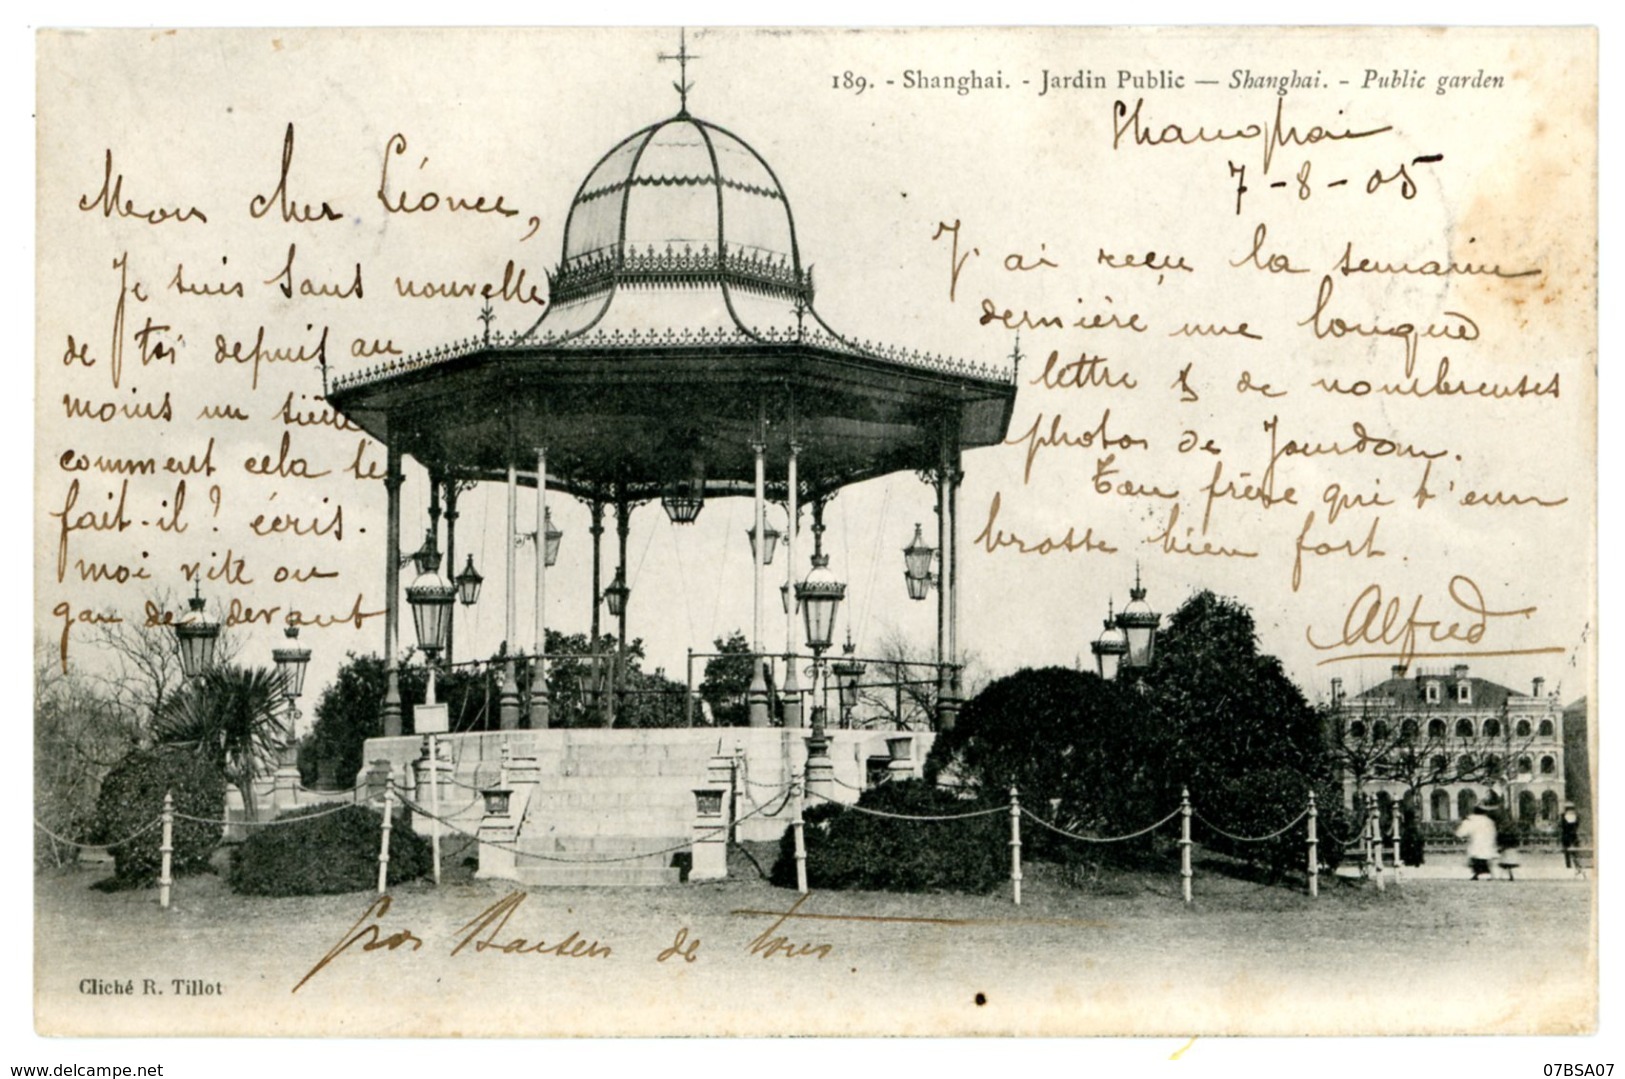 189. - Shanghai. - Jardin Public — Shanghai. - Public garden
Shanghai
7-8-05
Mon cher Léonce,
Je suis sans nouvelle
de toi depuis au
moins un siècle
comment cela le
fait-il ? écris-
moi vite ou
gau de devant
J'ai reçu la semaine
dernière une longue
lettre & de nombreuses
photos de
Ton frère qui t'
brosse bien fort.
Alfred
gros Baisers de tous
Cliché R. Tillot
www.delcampe.net
07BSA07